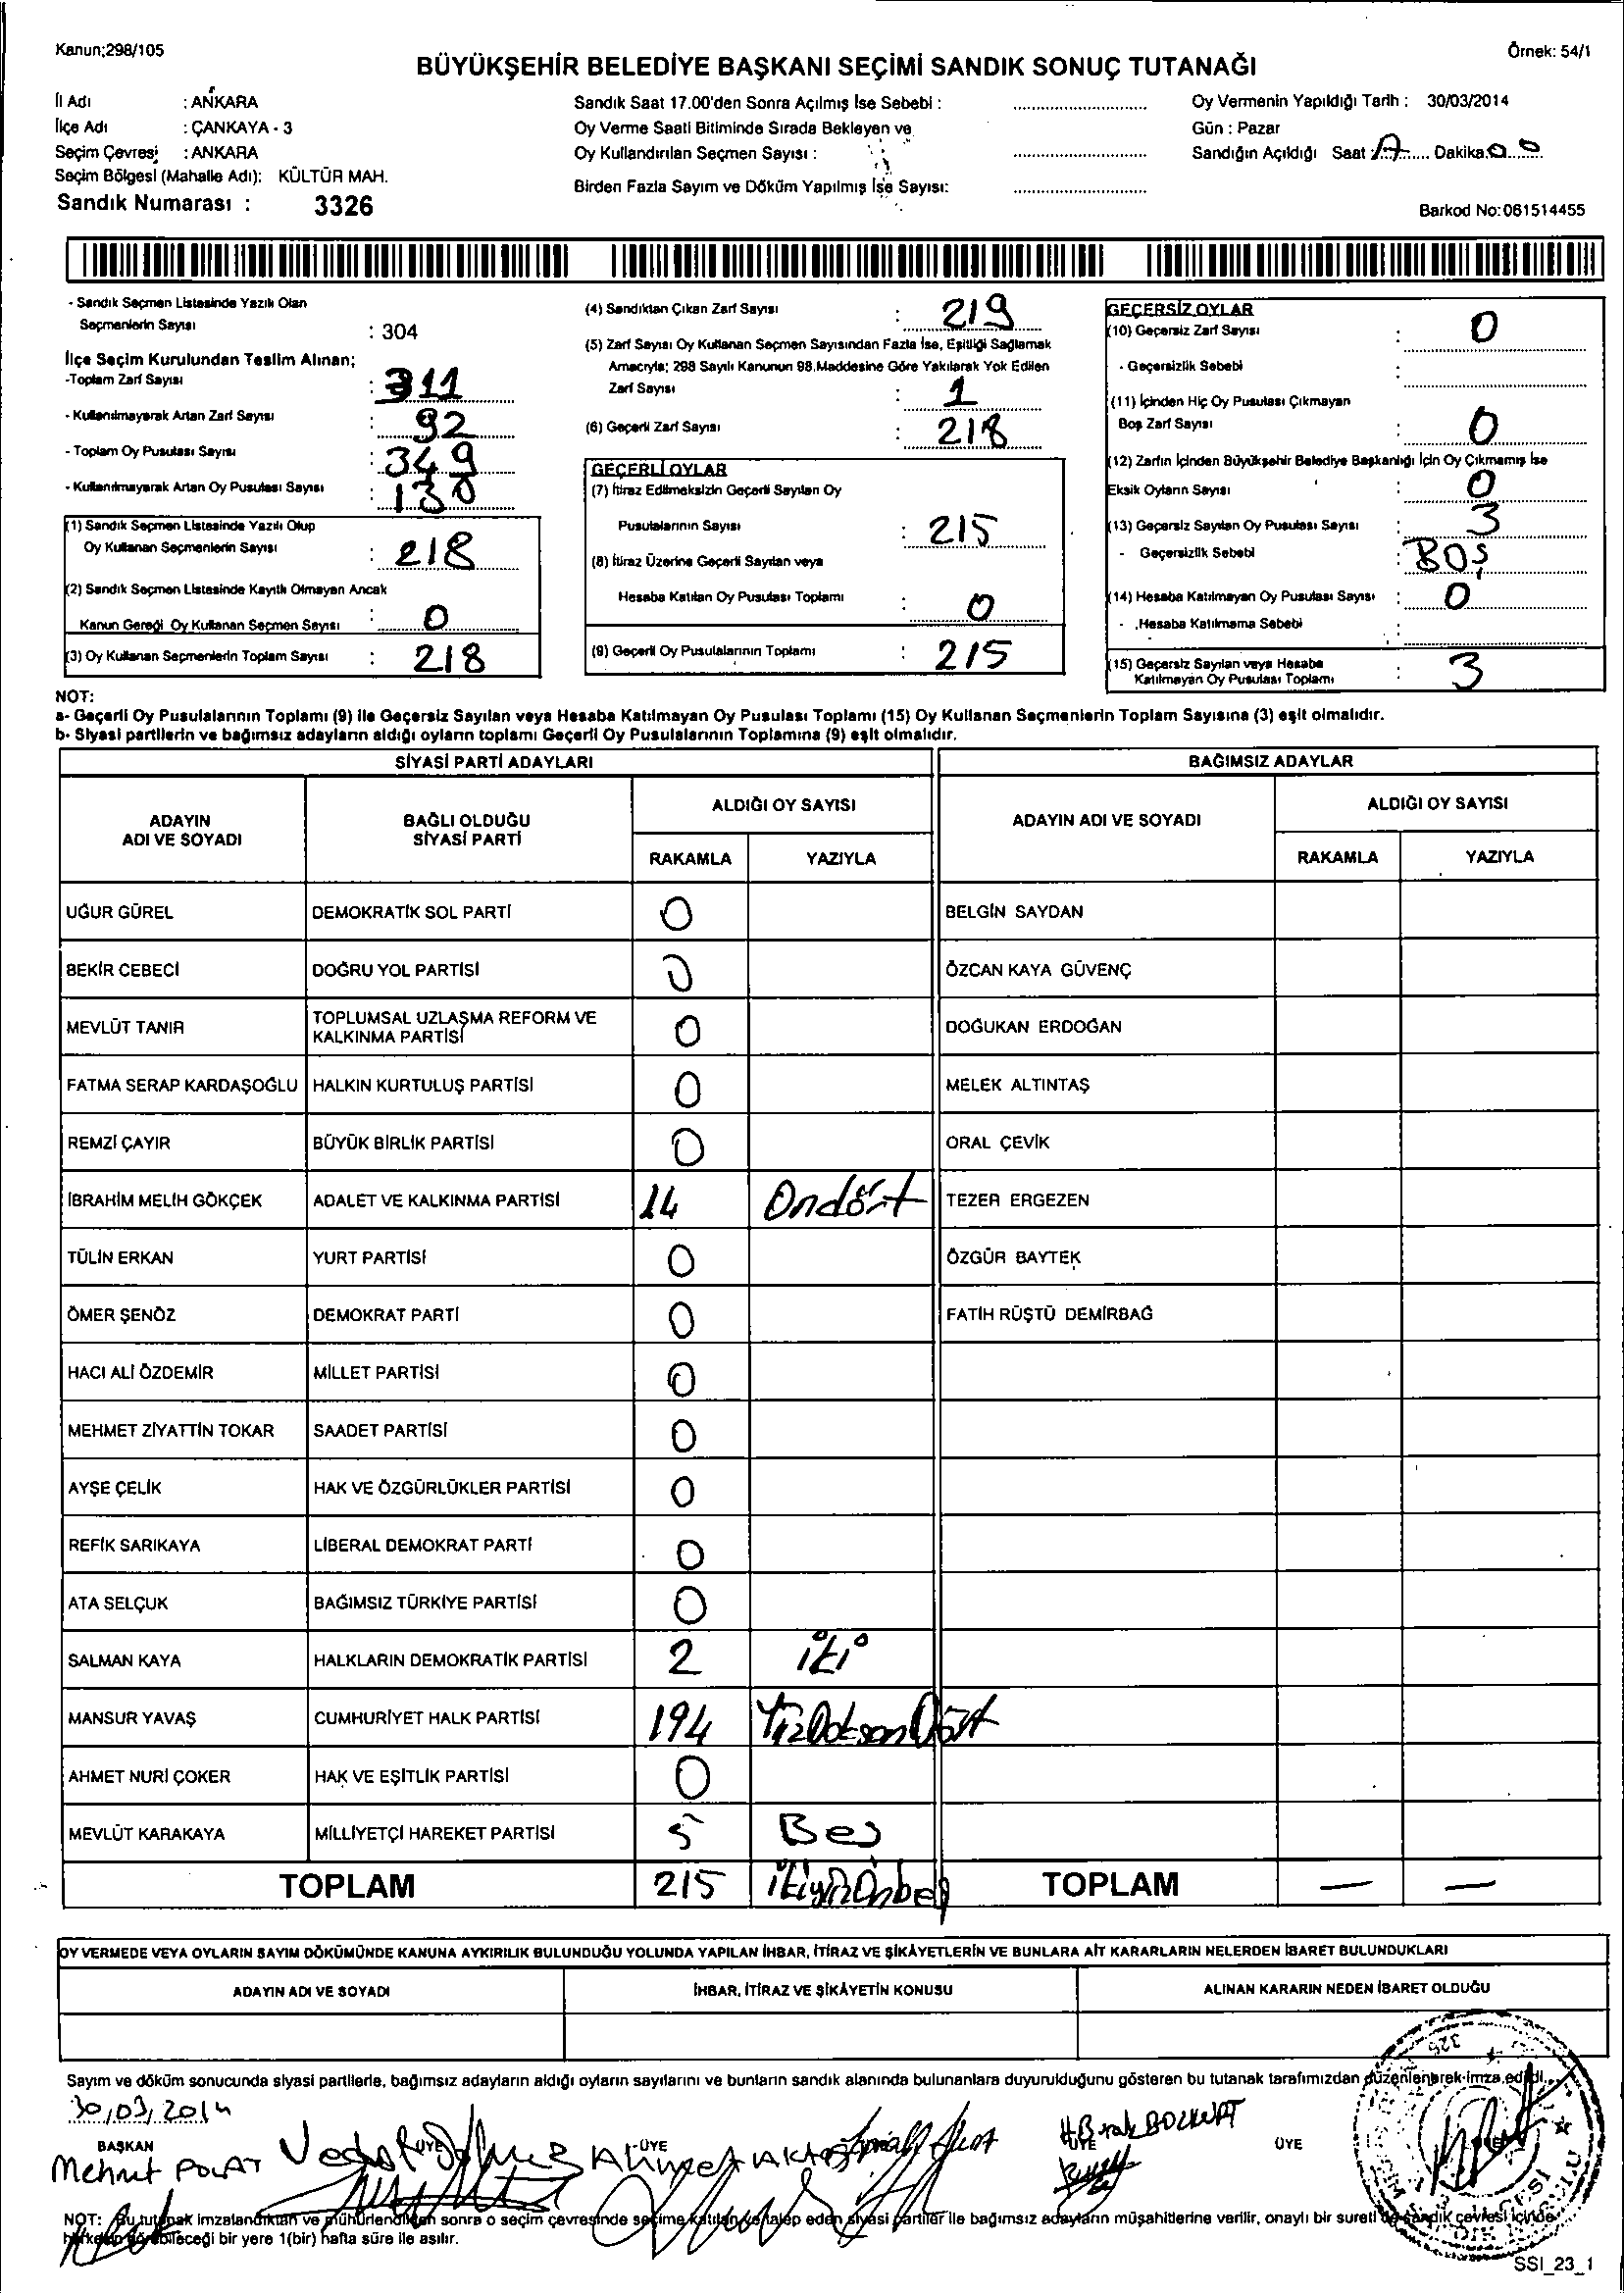 Kanun;298/105
Örnek: 54/1
BÜYÜKŞEHİR BELEDİYE BAŞKANI SEÇİMİ SANDIK SONUÇ TUTANAĞI
İl Adı : ANKARA
İlçe Adı : ÇANKAYA - 3
Seçim Çevresi : ANKARA
Seçim Bölgesi (Mahalle Adı): KÜLTÜR MAH.
Sandık Numarası : 3326
Sandık Saat 17.00'den Sonra Açılmış İse Sebebi :
Oy Verme Saati Bitiminde Sırada Bekleyen ve
Oy Kullandırılan Seçmen Sayısı :
Birden Fazla Sayım ve Döküm Yapılmış İse Sayısı:
Oy Vermenin Yapıldığı Tarih : 30/03/2014
Gün : Pazar
Sandığın Açıldığı Saat : Dakika 00
Barkod No:061514455
- Sandık Seçmen Listesinde Yazılı Olan
Seçmenlerin Sayısı : 304
İlçe Seçim Kurulundan Teslim Alınan;
-Toplam Zarf Sayısı : 311
- Kullanılmayarak Artan Zarf Sayısı : 92
- Toplam Oy Pusulası Sayısı : 349
- Kullanılmayarak Artan Oy Pusulası Sayısı : 130
(1) Sandık Seçmen Listesinde Yazılı Olup
Oy Kullanan Seçmenlerin Sayısı : 218
(2) Sandık Seçmen Listesinde Kayıtlı Olmayan Ancak
Kanun Gereği Oy Kullanan Seçmen Sayısı : 0
(3) Oy Kullanan Seçmenlerin Toplam Sayısı : 218
(4) Sandıktan Çıkan Zarf Sayısı : 219
(5) Zarf Sayısı Oy Kullanan Seçmen Sayısından Fazla İse, Eşitliği Sağlamak
Amacıyla; 298 Sayılı Kanunun 98.Maddesine Göre Yakılarak Yok Edilen
Zarf Sayısı : 1
(6) Geçerli Zarf Sayısı : 218
GEÇERLİ OYLAR
(7) İtiraz Edilmeksizin Geçerli Sayılan Oy
Pusulalarının Sayısı : 215
(8) İtiraz Üzerine Geçerli Sayılan veya
Hesaba Katılan Oy Pusulası Toplamı : 0
(9) Geçerli Oy Pusulalarının Toplamı : 215
GEÇERSİZ OYLAR
(10) Geçersiz Zarf Sayısı : 0
- Geçersizlik Sebebi :
(11) İçinden Hiç Oy Pusulası Çıkmayan
Boş Zarf Sayısı : 0
(12) Zarfın İçinden Büyükşehir Belediye Başkanlığı İçin Oy Çıkmamış İse
Eksik Oyların Sayısı : 0
(13) Geçersiz Sayılan Oy Pusulası Sayısı : 3
- Geçersizlik Sebebi : BOŞ
(14) Hesaba Katılmayan Oy Pusulası Sayısı : 0
- .Hesaba Katılmama Sebebi :
(15) Geçersiz Sayılan veya Hesaba
Katılmayan Oy Pusulası Toplamı : 3
NOT:
a- Geçerli Oy Pusulalarının Toplamı (9) ile Geçersiz Sayılan veya Hesaba Katılmayan Oy Pusulası Toplamı (15) Oy Kullanan Seçmenlerin Toplam Sayısına (3) eşit olmalıdır.
b- Siyasi partilerin ve bağımsız adayların aldığı oyların toplamı Geçerli Oy Pusulalarının Toplamına (9) eşit olmalıdır.
SİYASİ PARTİ ADAYLARI BAĞIMSIZ ADAYLAR
ADAYIN ADI VE SOYADI BAĞLI OLDUĞU SİYASİ PARTİ ALDIĞI OY SAYISI ADAYIN ADI VE SOYADI ALDIĞI OY SAYISI
RAKAMLA YAZIYLA RAKAMLA YAZIYLA
UĞUR GÜREL DEMOKRATİK SOL PARTİ 0 BELGİN SAYDAN
BEKİR CEBECİ DOĞRU YOL PARTİSİ 0 ÖZCAN KAYA GÜVENÇ
MEVLÜT TANIR TOPLUMSAL UZLAŞMA REFORM VE KALKINMA PARTİSİ 0 DOĞUKAN ERDOĞAN
FATMA SERAP KARDAŞOĞLU HALKIN KURTULUŞ PARTİSİ 0 MELEK ALTINTAŞ
REMZİ ÇAYIR BÜYÜK BİRLİK PARTİSİ 0 ORAL ÇEVİK
İBRAHİM MELİH GÖKÇEK ADALET VE KALKINMA PARTİSİ 14 Ondört TEZER ERGEZEN
TÜLİN ERKAN YURT PARTİSİ 0 ÖZGÜR BAYTEK
ÖMER ŞENÖZ DEMOKRAT PARTİ 0 FATİH RÜŞTÜ DEMİRBAĞ
HACI ALİ ÖZDEMİR MİLLET PARTİSİ 0
MEHMET ZİYATTİN TOKAR SAADET PARTİSİ 0
AYŞE ÇELİK HAK VE ÖZGÜRLÜKLER PARTİSİ 0
REFİK SARIKAYA LİBERAL DEMOKRAT PARTİ 0
ATA SELÇUK BAĞIMSIZ TÜRKİYE PARTİSİ 0
SALMAN KAYA HALKLARIN DEMOKRATİK PARTİSİ 2 iki
MANSUR YAVAŞ CUMHURİYET HALK PARTİSİ 194 YüzDoksanDört
AHMET NURİ ÇOKER HAK VE EŞİTLİK PARTİSİ 0
MEVLÜT KARAKAYA MİLLİYETÇİ HAREKET PARTİSİ 5 Beş
TOPLAM 215 ikiyüzOnbeş TOPLAM — —
OY VERMEDE VEYA OYLARIN SAYIM DÖKÜMÜNDE KANUNA AYKIRILIK BULUNDUĞU YOLUNDA YAPILAN İHBAR, İTİRAZ VE ŞİKÂYETLERİN VE BUNLARA AİT KARARLARIN NELERDEN İBARET BULUNDUKLARI
ADAYIN ADI VE SOYADI İHBAR, İTİRAZ VE ŞİKÂYETİN KONUSU ALINAN KARARIN NEDEN İBARET OLDUĞU
Sayım ve döküm sonucunda siyasi partilerle, bağımsız adayların aldığı oyların sayılarını ve bunların sandık alanında bulunanlara duyurulduğunu gösteren bu tutanak tarafımızdan düzenlenerek imza edildi.
30/03/2014
BAŞKAN ÜYE ÜYE ÜYE ÜYE
Mehmet POLAT Ahmet H.Burak BOZKURT
NOT: Bu tutanak imzalandıktan ve mühürlendikten sonra o seçim çevresinde seçime katılan ve talep eden siyasi partiler ile bağımsız adayların müşahitlerine verilir, onaylı bir sureti de sandık çevresi içinde
herkesin görebileceği bir yere 1(bir) hafta süre ile asılır.
SSI_23_1